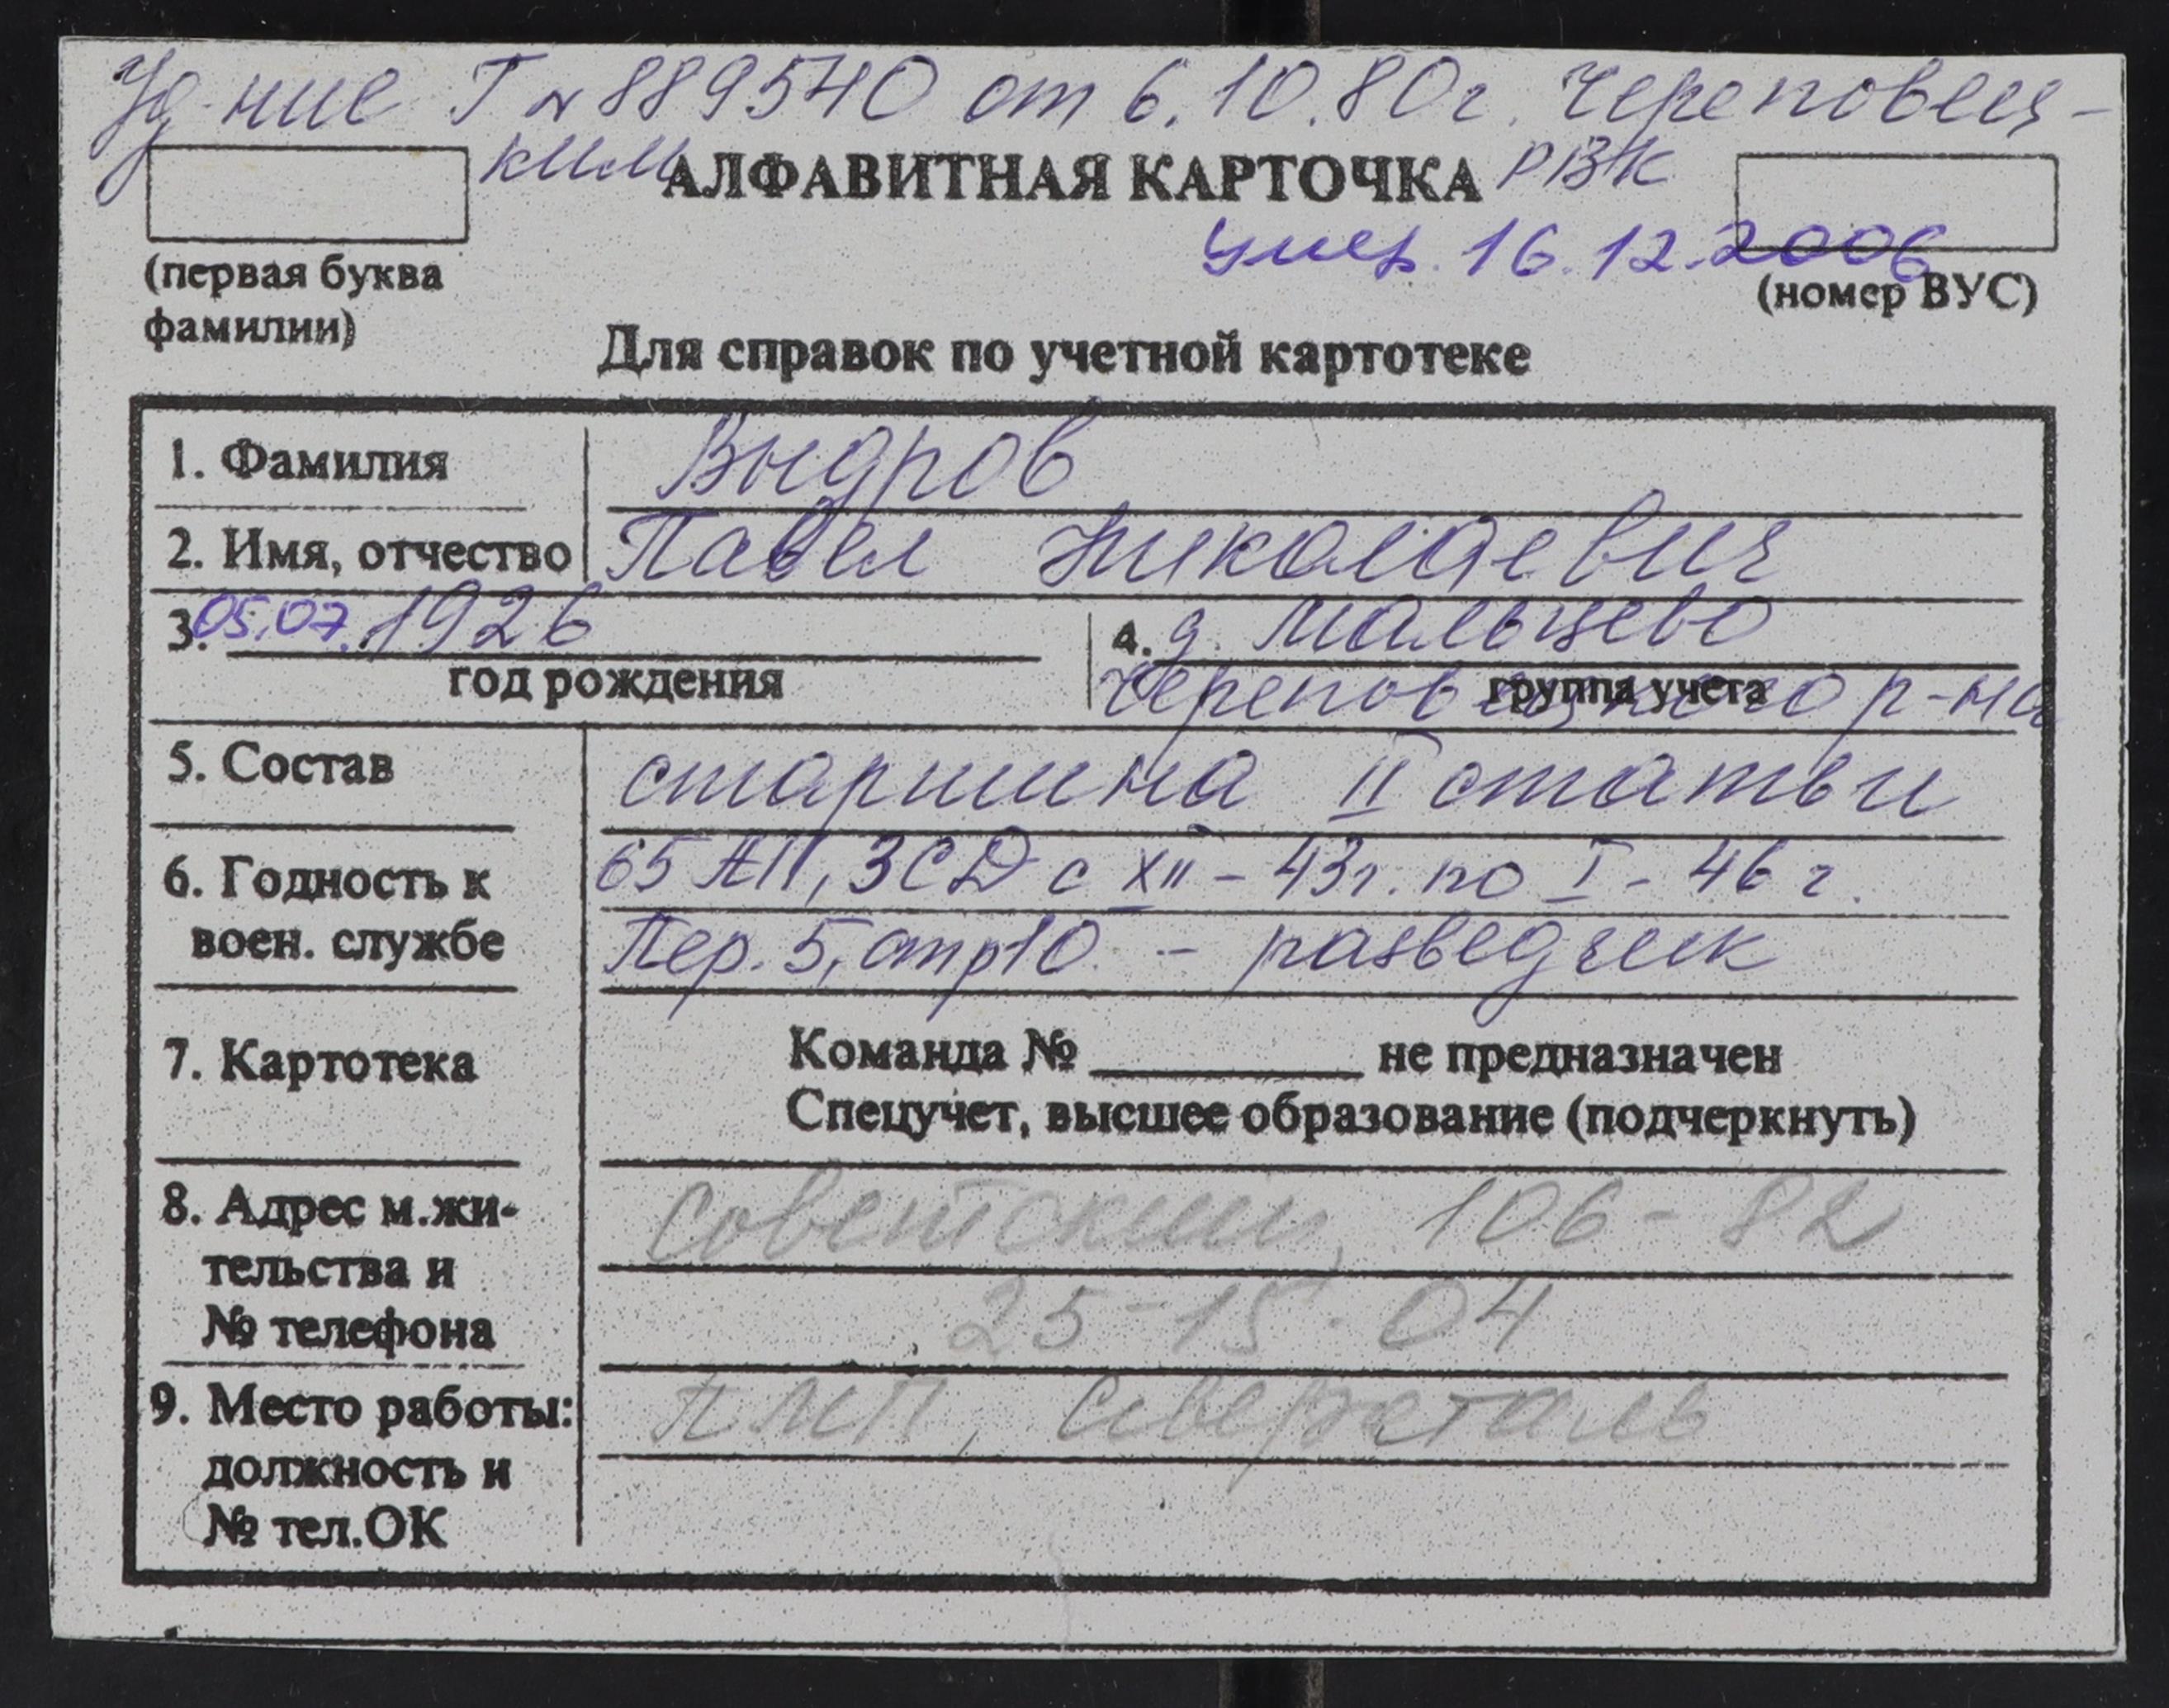 Уд-ние Г № 889540 от 6.10.80г. Череповец-
ким РВК
АЛФАВИТНАЯ КАРТОЧКА
умер. 16.12.2006
(первая буква
фамилии)
(номер ВУС)
Для справок по учетной картотеке
1. Фамилия Выдров
2. Имя, отчество Павел Николаевич
3. 05.07.1926
год рождения
4. д. Мальцево
Череповецкого р-на
группа учета
5. Состав старшина II статьи
6. Годность к
воен. службе
65 АП, 3СД с XII-43г. по I-46г.
Пер. 5, стр10 - разведчик
7. Картотека
Команда № не предназначен
Спецучет, высшее образование (подчеркнуть)
8. Адрес м.жи-
тельства и
№ телефона
Советский, 106-82
25-15-04
9. Место работы:
должность и
№ тел.ОК
ПМП, Северсталь